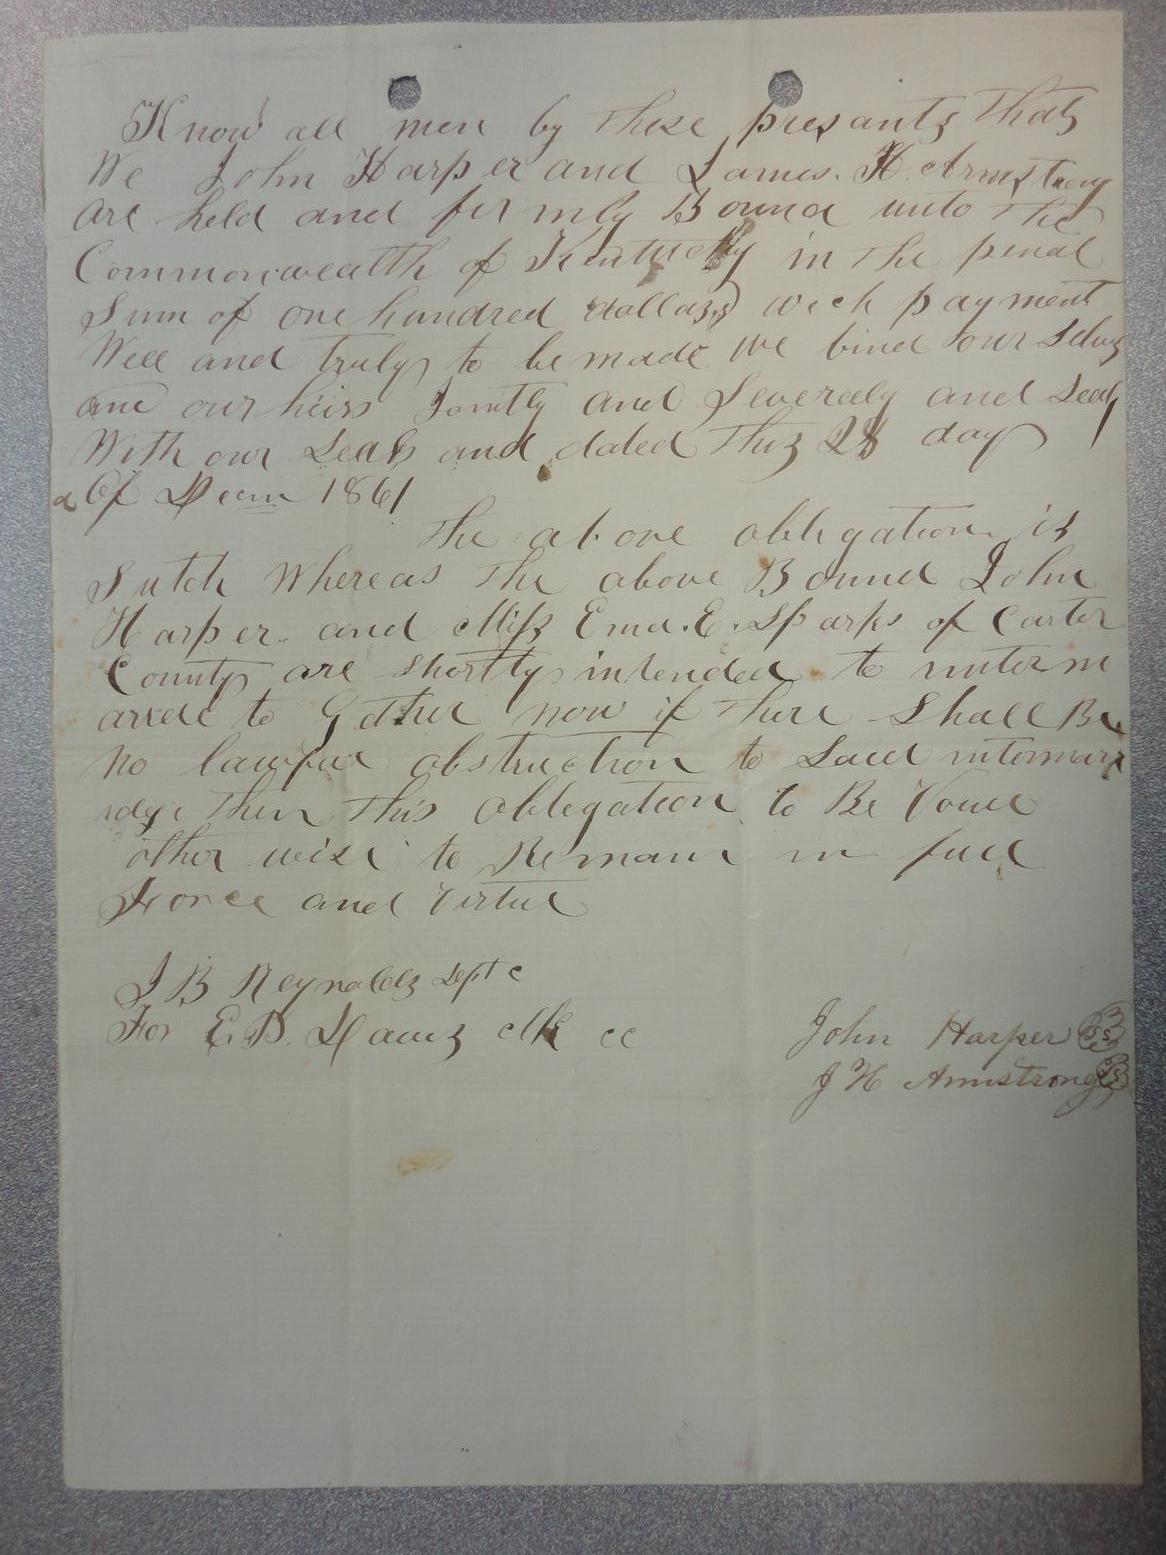 Know all men by these presants that
We John Harper and James. H. Armstrong
are held and firmly Bound unto the
Commonwealth of Kentucky in the penal
Sum of one hundred dollars wich payment
Well and truly to be made We bind our Selvs
and our heirs Jointly and Severely and Seald
With our Seals and dated this 28 day
Of Decm 1861
The above obligation is
Sutch Whereas the above Bound John
Harper. and Miss Ema. E. Sparks of Carter
County are shortly intended to interm
aredc to Gether now if there Shall Be
no lawful obstruction to Said intermarr
idge then this obligation to Be Void
other wise to Remain in full
Force and Virtue
J B Reynolds Dept c
For E. D. Davis Clk cc
John Harper
J H Armstrong